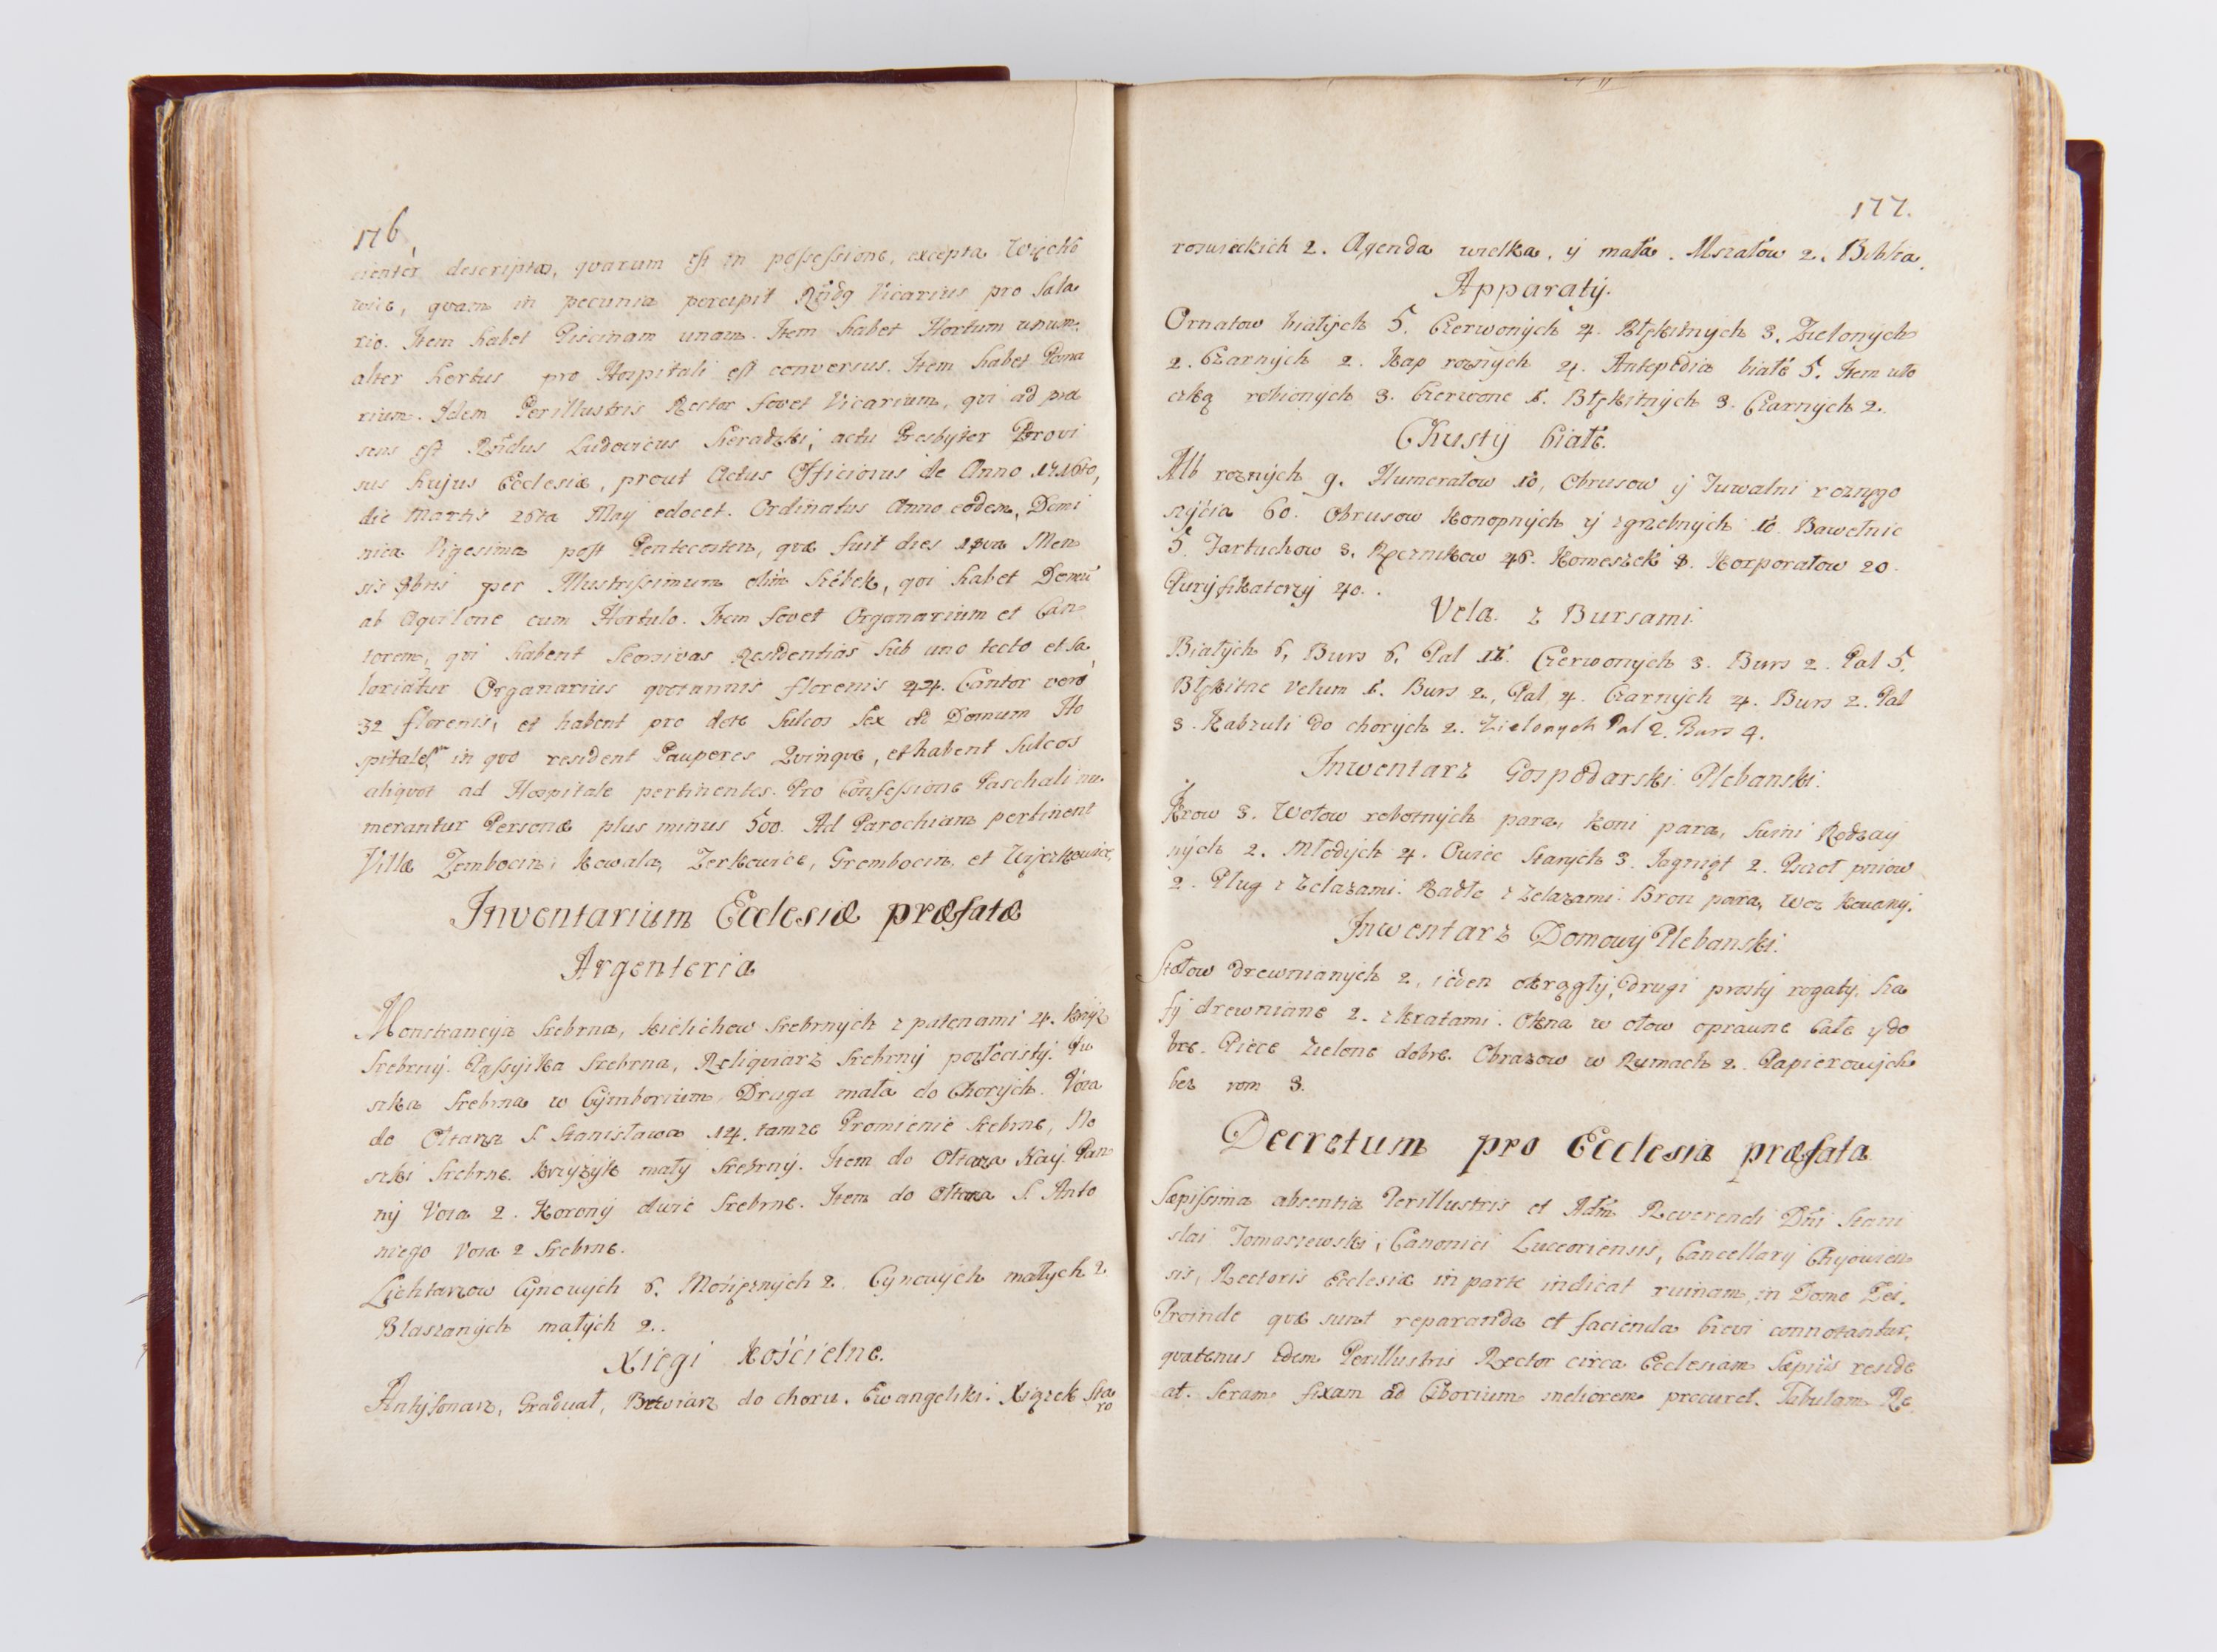 176.
cienter descriptæ, quarum est in possessione, excepta Więcko
wice, quam in pecunia percipit Rñdq Vicarius pro Sala
rio. Item habet Piscinam unam. Item habet Hortum unum,
alter hortus pro Hospitali est conversus. Item habet Poma
rium. Idem Perillustris Rector fovet Vicarium, qui ad præ
sens est Rñdus Ludovicus Sieradzki, actu Presbyter Provi
sus hujus Ecclesiæ, prout Actus Officiosus de Anno
die Martis 26ta Maÿ edocet. Ordinatus Anno eodem, Domi
nica Vigesima post Pentecosten, quæ fuit dies Men
sis per Illustrissimum olim Szêbek, qui habet Domũ
ab Aquilone cum Hortulo. Item fovet Organarium et Can
torem, qui habent Seorsivas Residentias sub uno tecto et sa
lariatur Organarius quotannis florenis 44. Cantor vero
32 florenis, et habent pro dote Sulcos sex et Domum Ho
spitalẽ, in quo resident Pauperes Quinque, et habent Sulcos
aliquot ad Hospitale pertinentes. Pro Confessione Paschali nu
merantur Personæ plus minus 500. Ad Parochiam pertinent
Villæ Zembocin, Kowala, Zerkowice, Grembocin, et Więckowice,
Inventarium Ecclesiæ præfatæ
Argenteria
Monstrancya Srebrna, Kielichow Srebrnych z patenami 4. Krzyz
Srebrny. Passyika Srebrna, Reliquiarz Srebrny pozłocisty. Pu
szka Srebrna w Cymborium, Druga mała do Chorych. Vota
do Ołtarza S. Stanisława 14. tamze Promienie Srebrne, No
szki Srebrne. Krzyżyk mały Srebrny. Item do Ołtarza Nay. Pan
ny Vota 2. Korony dwie Srebrne. Item do Ołtarza S. Anto
niego Vota 2 Srebrne.
Lichtarzow Cynowych 6. Mosięznych 2. Cynowych małych 2
Blaszanych małych 2..
Xięgi Kościelne.
Antyfonarz, Graduał, Brewiarz do choru. Ewangeliki. Xiązek Sta
ro
177.
roswieckich 2. Agenda wielka, ÿ mała. Mszałow 2. Biblia.
Apparatÿ.
Ornatow białych 5. Czerwonych 4. Błękitnych 3. Zielonych
2. Czarnych 2. Kap roznych 4. Antepedia białe 5. Item włó
czką robionych 3. Czerwone 1. Błękitnych 3. Czarnych 2.
Chustÿ białe.
Alb roznych 9. Humerałow 10, Obrusow ÿ Tuwalni roznego
szÿcia 60. Obrusow Konopnych ÿ zgrzebnych 10. Bawełnic
5. Fartuchow 3. Ręcznikow 46. Komeszek 8. Korporałow 20.
Puryfikaterzÿ 40.
Vela z Bursami.
Białych 6. Burs 6. Pal Czerwonych 3. Burs 2. Pal 5.
Błękitne Velum 1. Burs 2, Pal 4. Czarnych 4. Burs 2. Pal
3. Kabzuli do chorych 2. Zielonych Pal 2. Burs 4.
Inwentarz Gospodarski Plebanski.
Krow 3. Wołow robotnych para, Koni para, Swini Rodzay
nych 2. Młodych 4. Owiec Starych 3. Jagniąt 2. Pszoł pniow
2. Pług z Zelazami. Radło z Zelazami. Bron para, Woz kowany.
Inwentarz Domowy Plebanski.
Stołow drewnianych 2, ieden okrągły, drugi prosty rogaty. Sza
fy drewniane 2. z kratami. Okna w ołow oprawne całe y do
bre. Piece Zielone dobre. Obrazow w Ramach 2. Papierowych
bez ram 3.
Decretum pro Ecclesia præfata
Sæpissima absentia Perillustris et Adm̃ Reverendi Dñi Stani
slai Tomaszewski, Canonici Luceoriensis, Cancellarÿ Chyovien
sis, Rectoris Ecclesiæ in parte indicat ruinam in Domo Dei.
Proinde quæ sunt reparanda et facienda brevi connotantur,
quatenus idem Perillustris Rector circa Ecclesiam Sæpius reside
at. Seram fixam ad Ciborium meliorem procuret. Tabulam Re